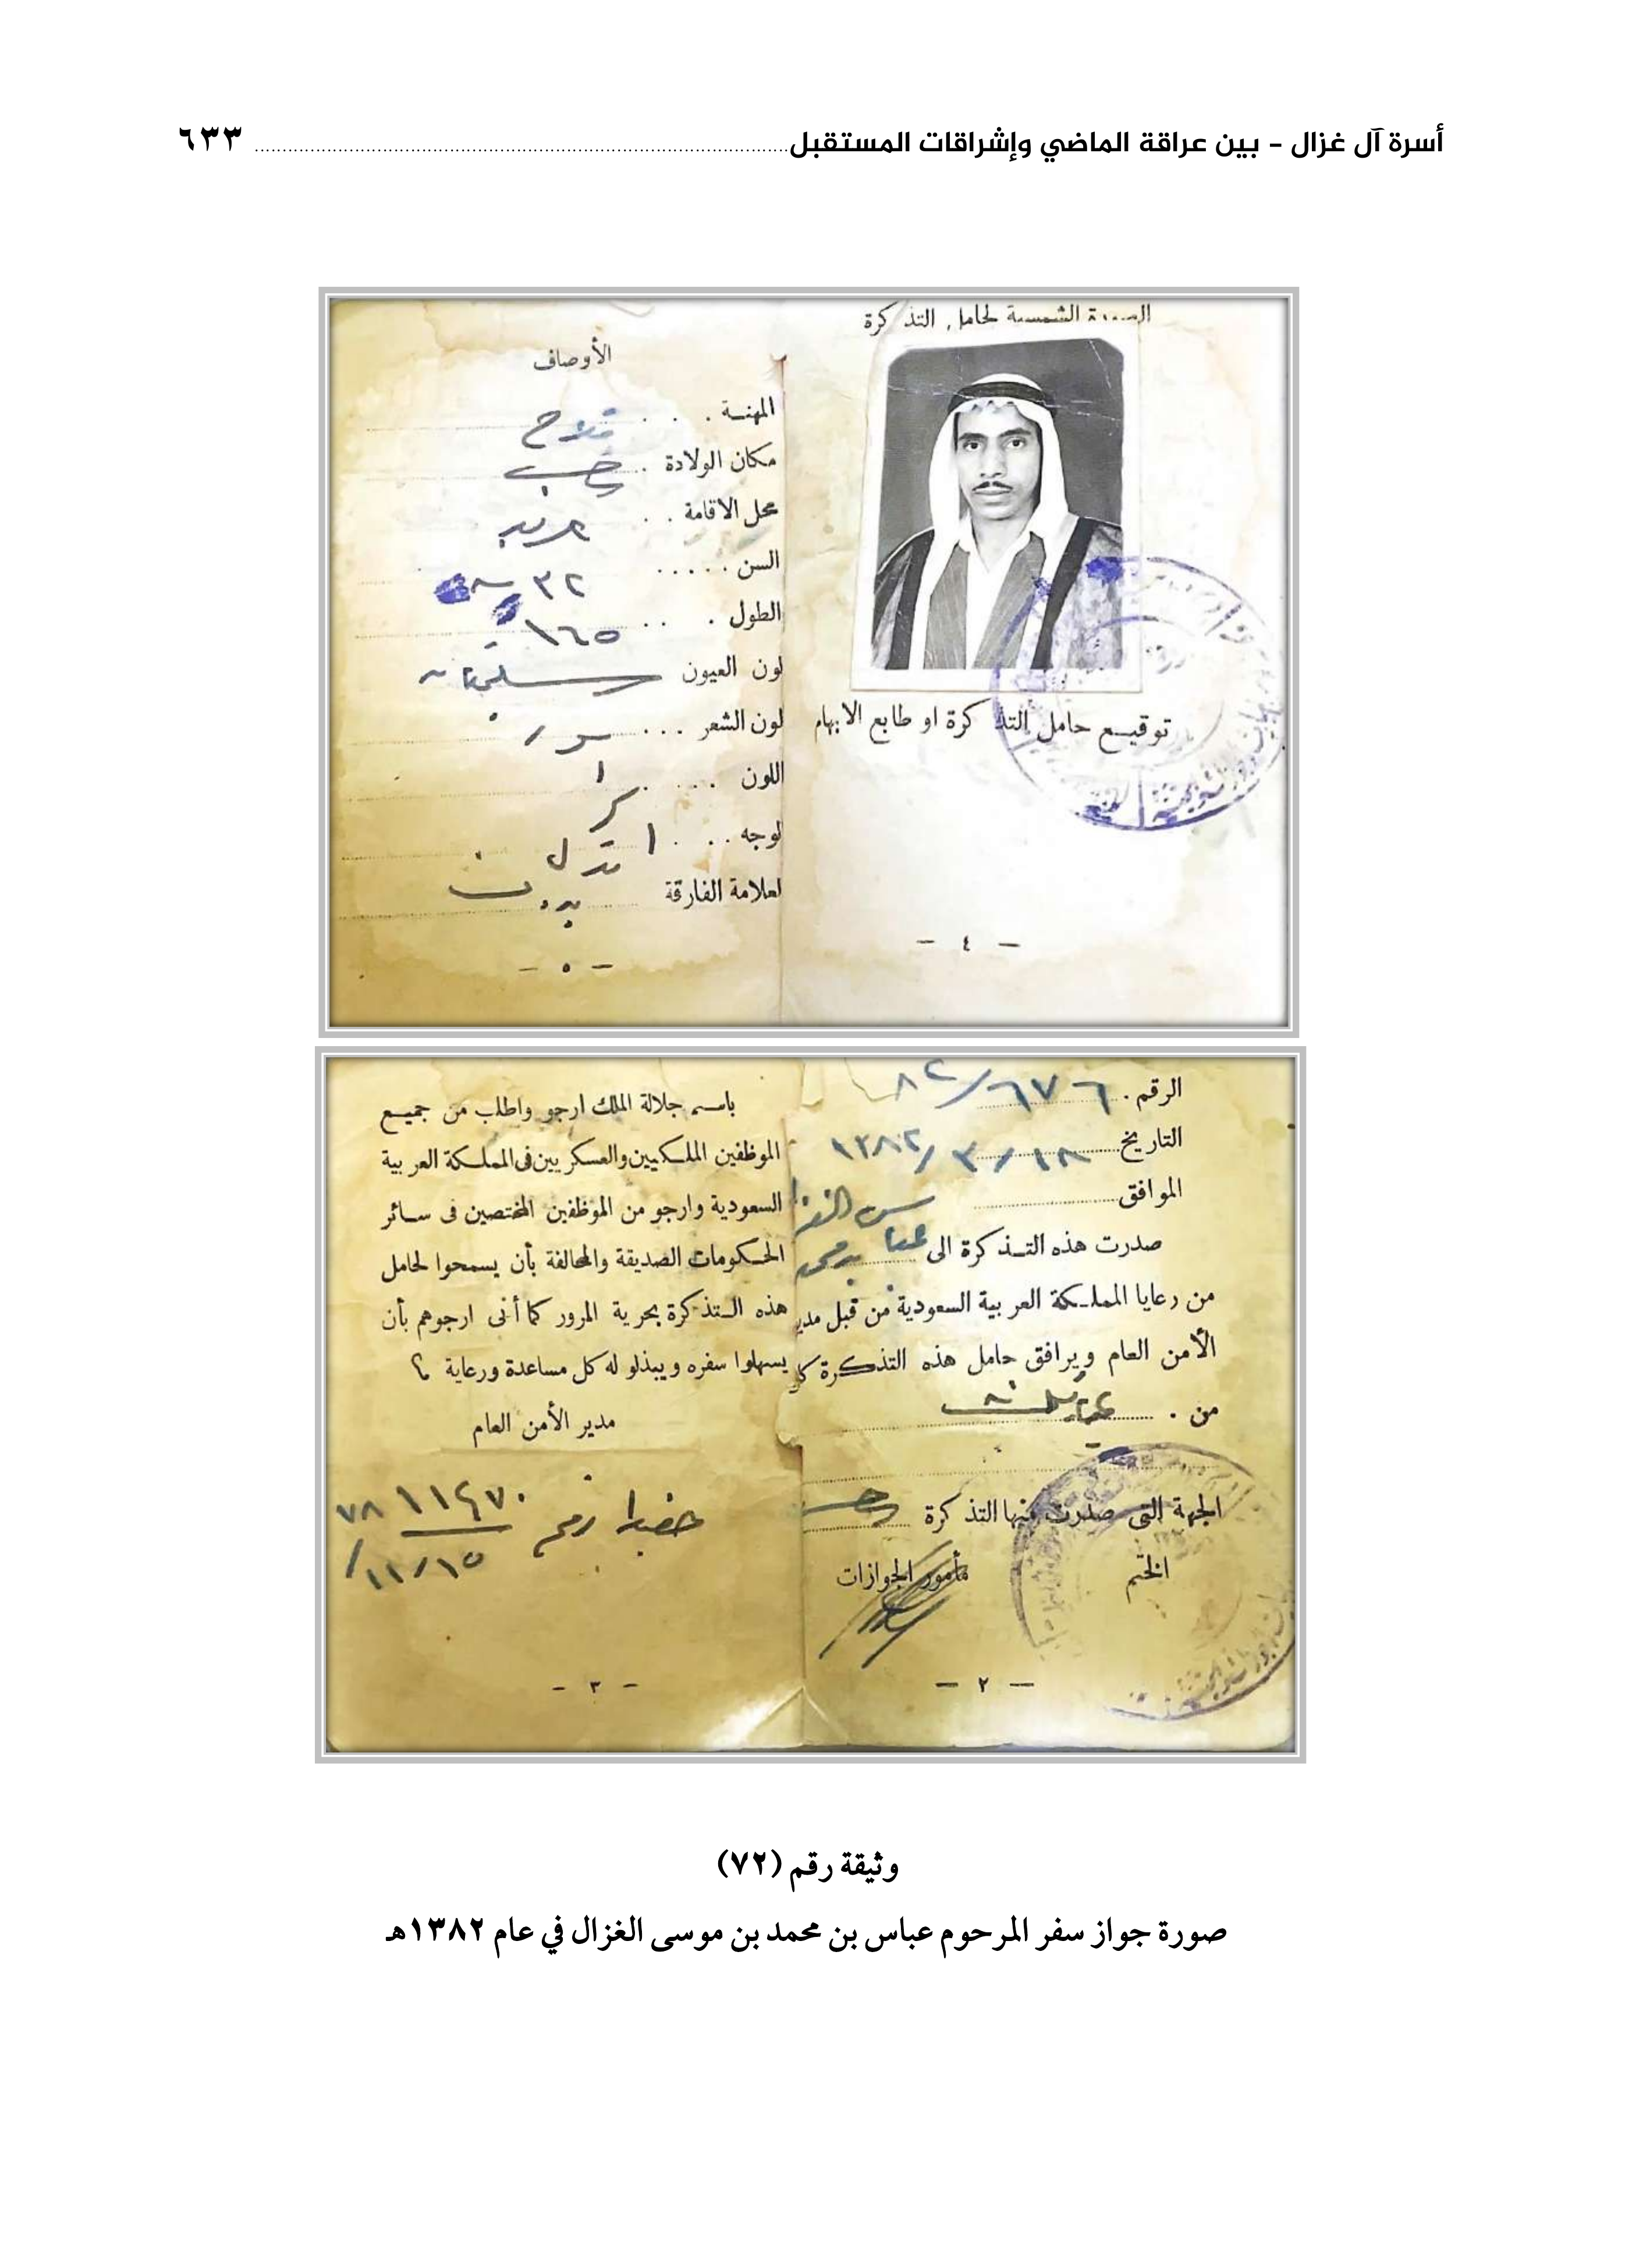 أسرة آل غزال - بين عراقة الماضي وإشراقات المستقبل ٦٣٣
الصورة الشمسية لحامل التذكرة
توقيع حامل التذكرة او طابع الابهام
- ٤ -
الأوصاف
المهنة . . . فلاح
مكان الولادة .
محل الاقامة . .
السن . . . . . ٣٢
الطول . . . ١٦٥
لون العيون
لون الشعر . . .
اللون . . . .
لوجه . . .
لعلامة الفارقة بدون
- ٥ -
الرقم . ٦٧٦/٨٢
التاريخ ١٨/٣/١٣٨٢
الموافق
صدرت هذه التذكرة الى عباس الغزال
من رعايا المملكة العربية السعودية من قبل مدير
الأمن العام ويرافق حامل هذه التذكرة كل
من .
الجهة التى صدرت منها التذكرة
الختم مأمور الجوازات
- ٢ -
باسم جلالة الملك ارجو واطلب من جميع
الموظفين الملكيين والعسكريين فى المملكة العربية
السعودية وارجو من الموظفين المختصين فى سائر
الحكومات الصديقة والمحالفة بأن يسمحوا لحامل
هذه التذكرة بحرية المرور كما أنى ارجوهم بأن
يسهلوا سفره ويبذلو له كل مساعدة ورعاية ؟
مدير الأمن العام
رقم
١٥/١١/
- ٣ -
وثيقة رقم (٧٢)
صورة جواز سفر المرحوم عباس بن محمد بن موسى الغزال في عام ١٣٨٢هـ